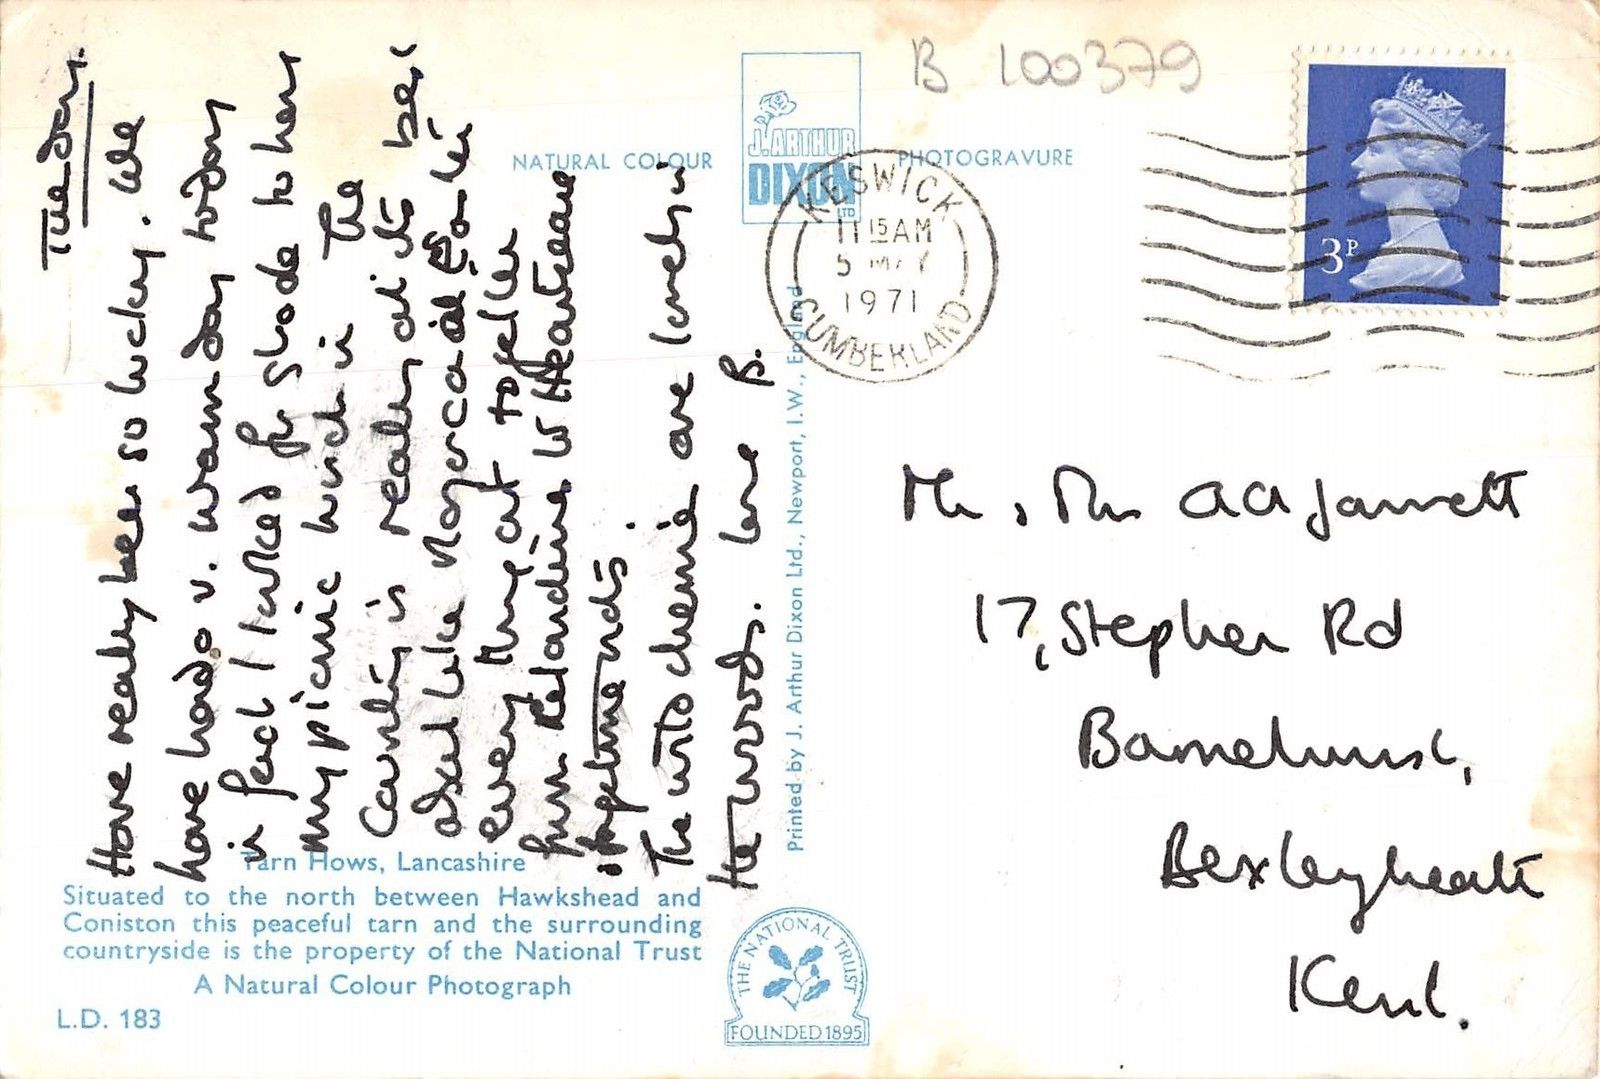 Tuesday.
Have really been so lucky. We
have had a v. warm day today
in fact I looked for shade to have
my picnic lunch in. The
Country is really at its best
just like
every thing out together
from
The wild cherries are lovely in
the woods. love B.
NATURAL COLOUR
J. ARTHUR
DIXON
LTD
PHOTOGRAVURE
B 100379
KESWICK
11 15 AM
5 MAY
1971
CUMBERLAND
3P
Printed by J. Arthur Dixon Ltd., Newport, I.W., England
Mr, Mrs A A Jarrett
17, Stephen Rd
Barnehurst,
Bexleyheath
Kent.
Tarn Hows, Lancashire
Situated to the north between Hawkshead and
Coniston this peaceful tarn and the surrounding
countryside is the property of the National Trust
A Natural Colour Photograph
L.D. 183
THE NATIONAL TRUST
FOUNDED 1895